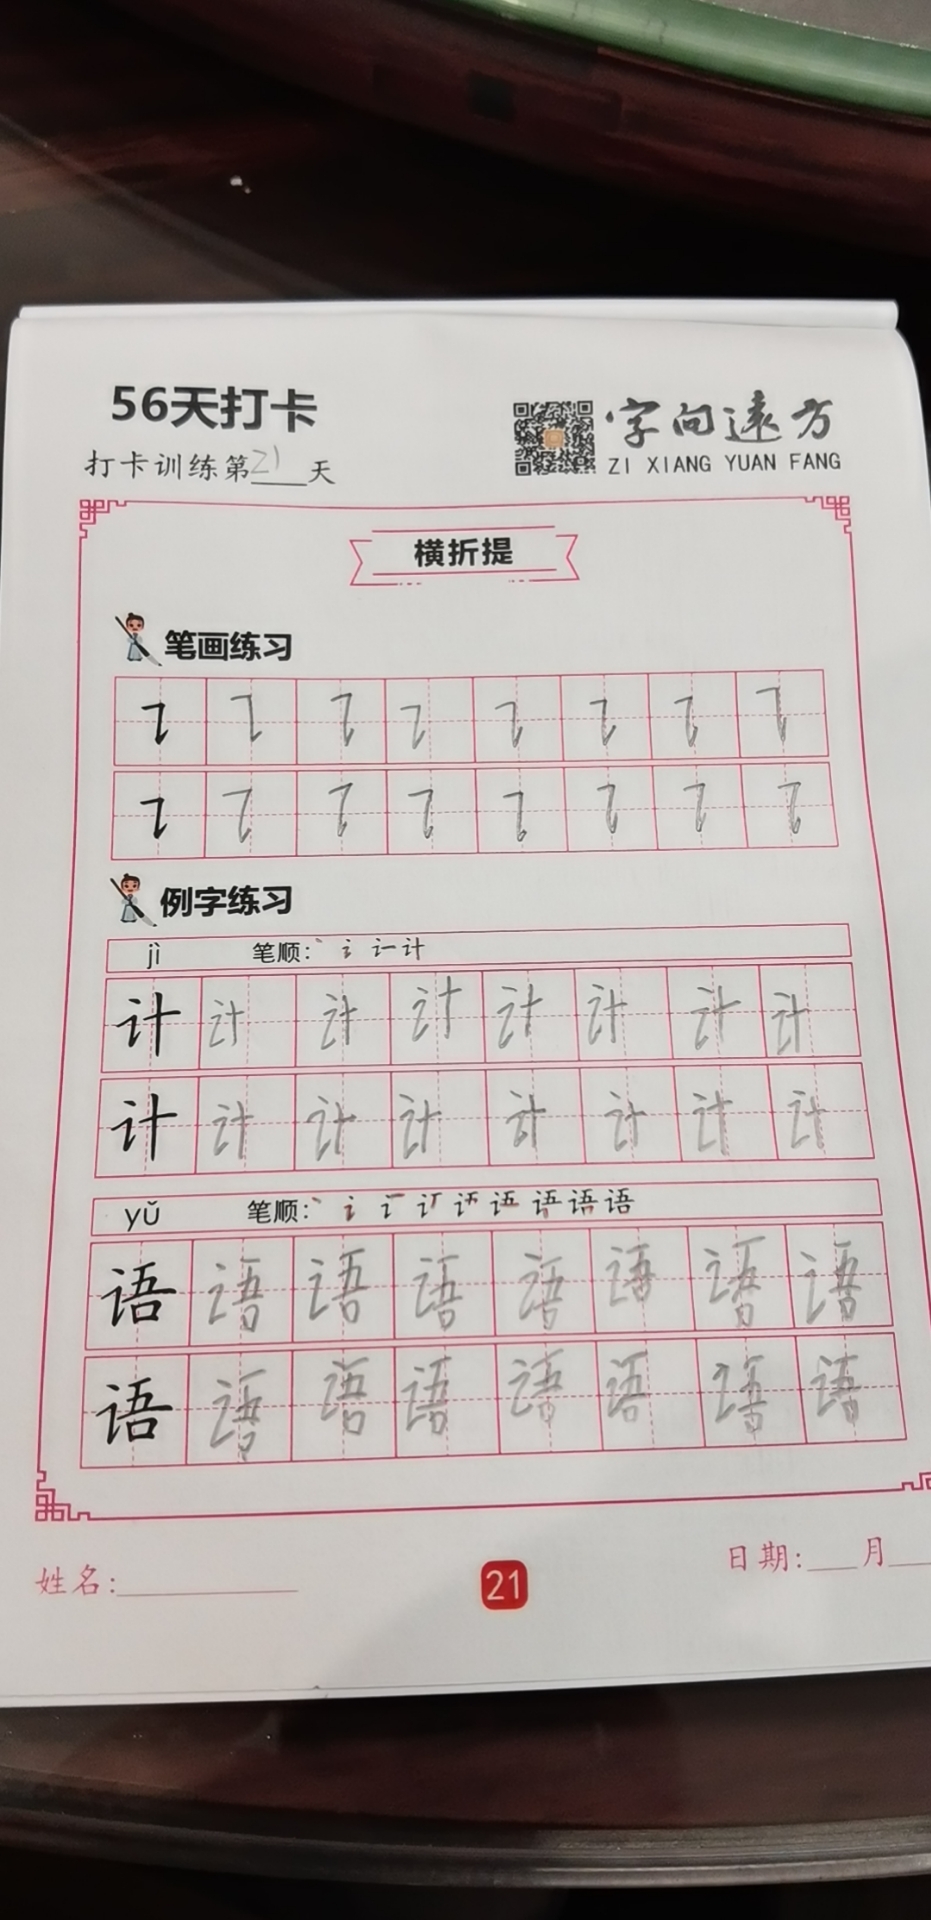 56天打卡
打卡训练第21天
字向远方
ZI XIANG YUAN FANG
横折提
笔画练习
㇊ ㇊ ㇊ ㇊ ㇊ ㇊ ㇊ ㇊
㇊ ㇊ ㇊ ㇊ ㇊ ㇊ ㇊ ㇊
例字练习
jì 笔顺：丶 讠 计
计 计 计 计 计 计 计 计
计 计 计 计 计 计 计 计
yǔ 笔顺：丶 讠 语 语
语 语 语 语 语 语 语 语
语 语 语 语 语 语 语 语
姓名：
21
日期： 月